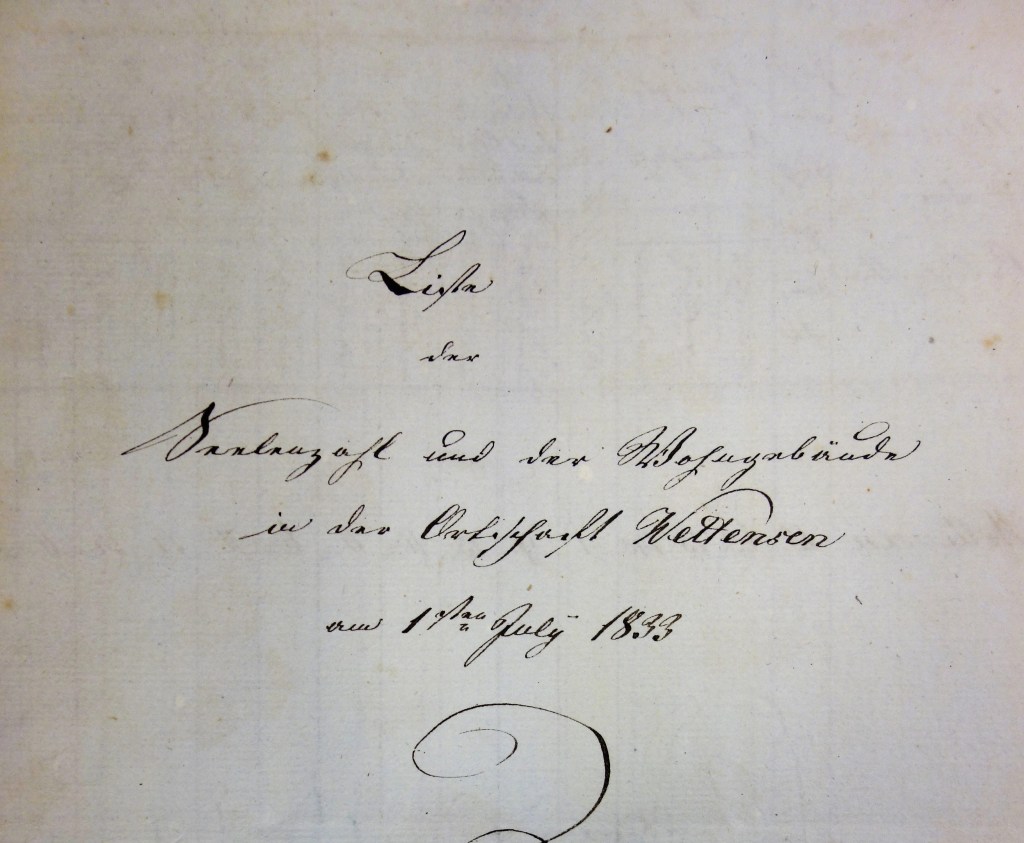 Liste
der
Seelenzahl und der Wohngebäude
in der Ortschaft Wettensen
am 1sten July 1833